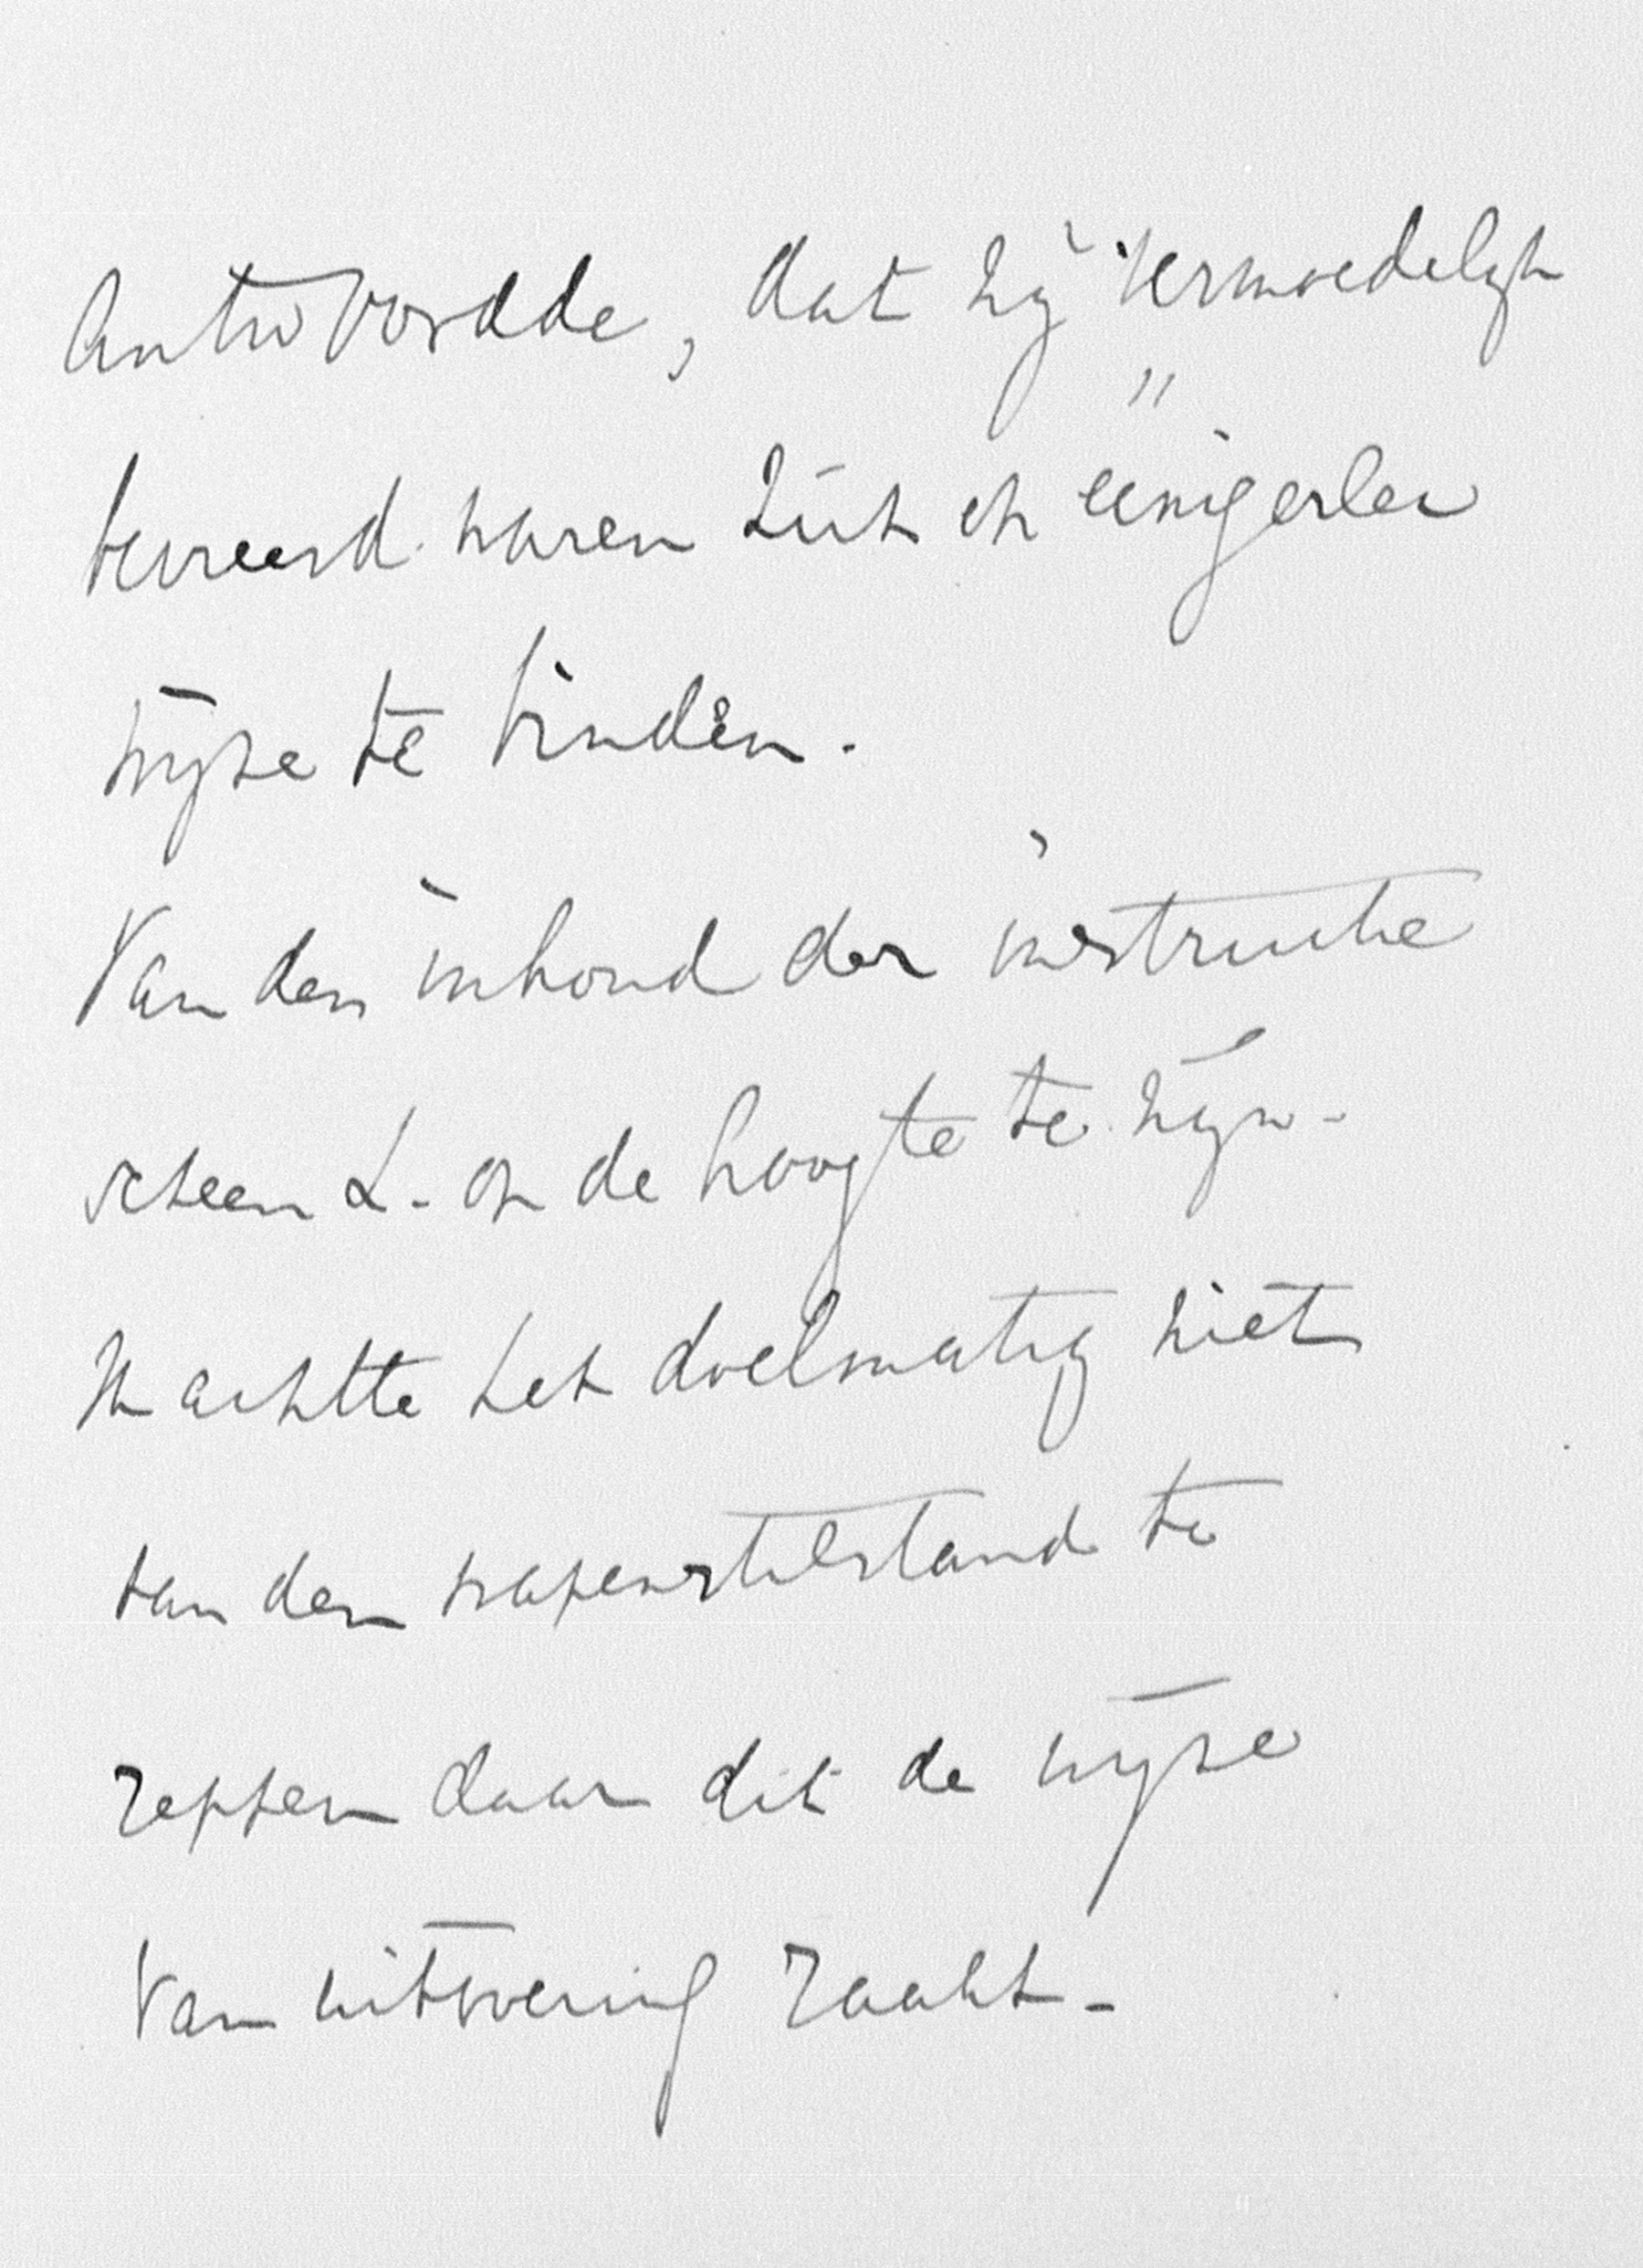 antwoordde, dat zij vermoedelijk
bevreesd waren zich op eenigerlei
wijze te binden.
Van den inhoud der instructie
scheen L. op de hoogte te zijn.
Ik achtte het doelmatig niet
van den wapenstilstand te
reppen daar dit de wijze
van uitvoering raakt.